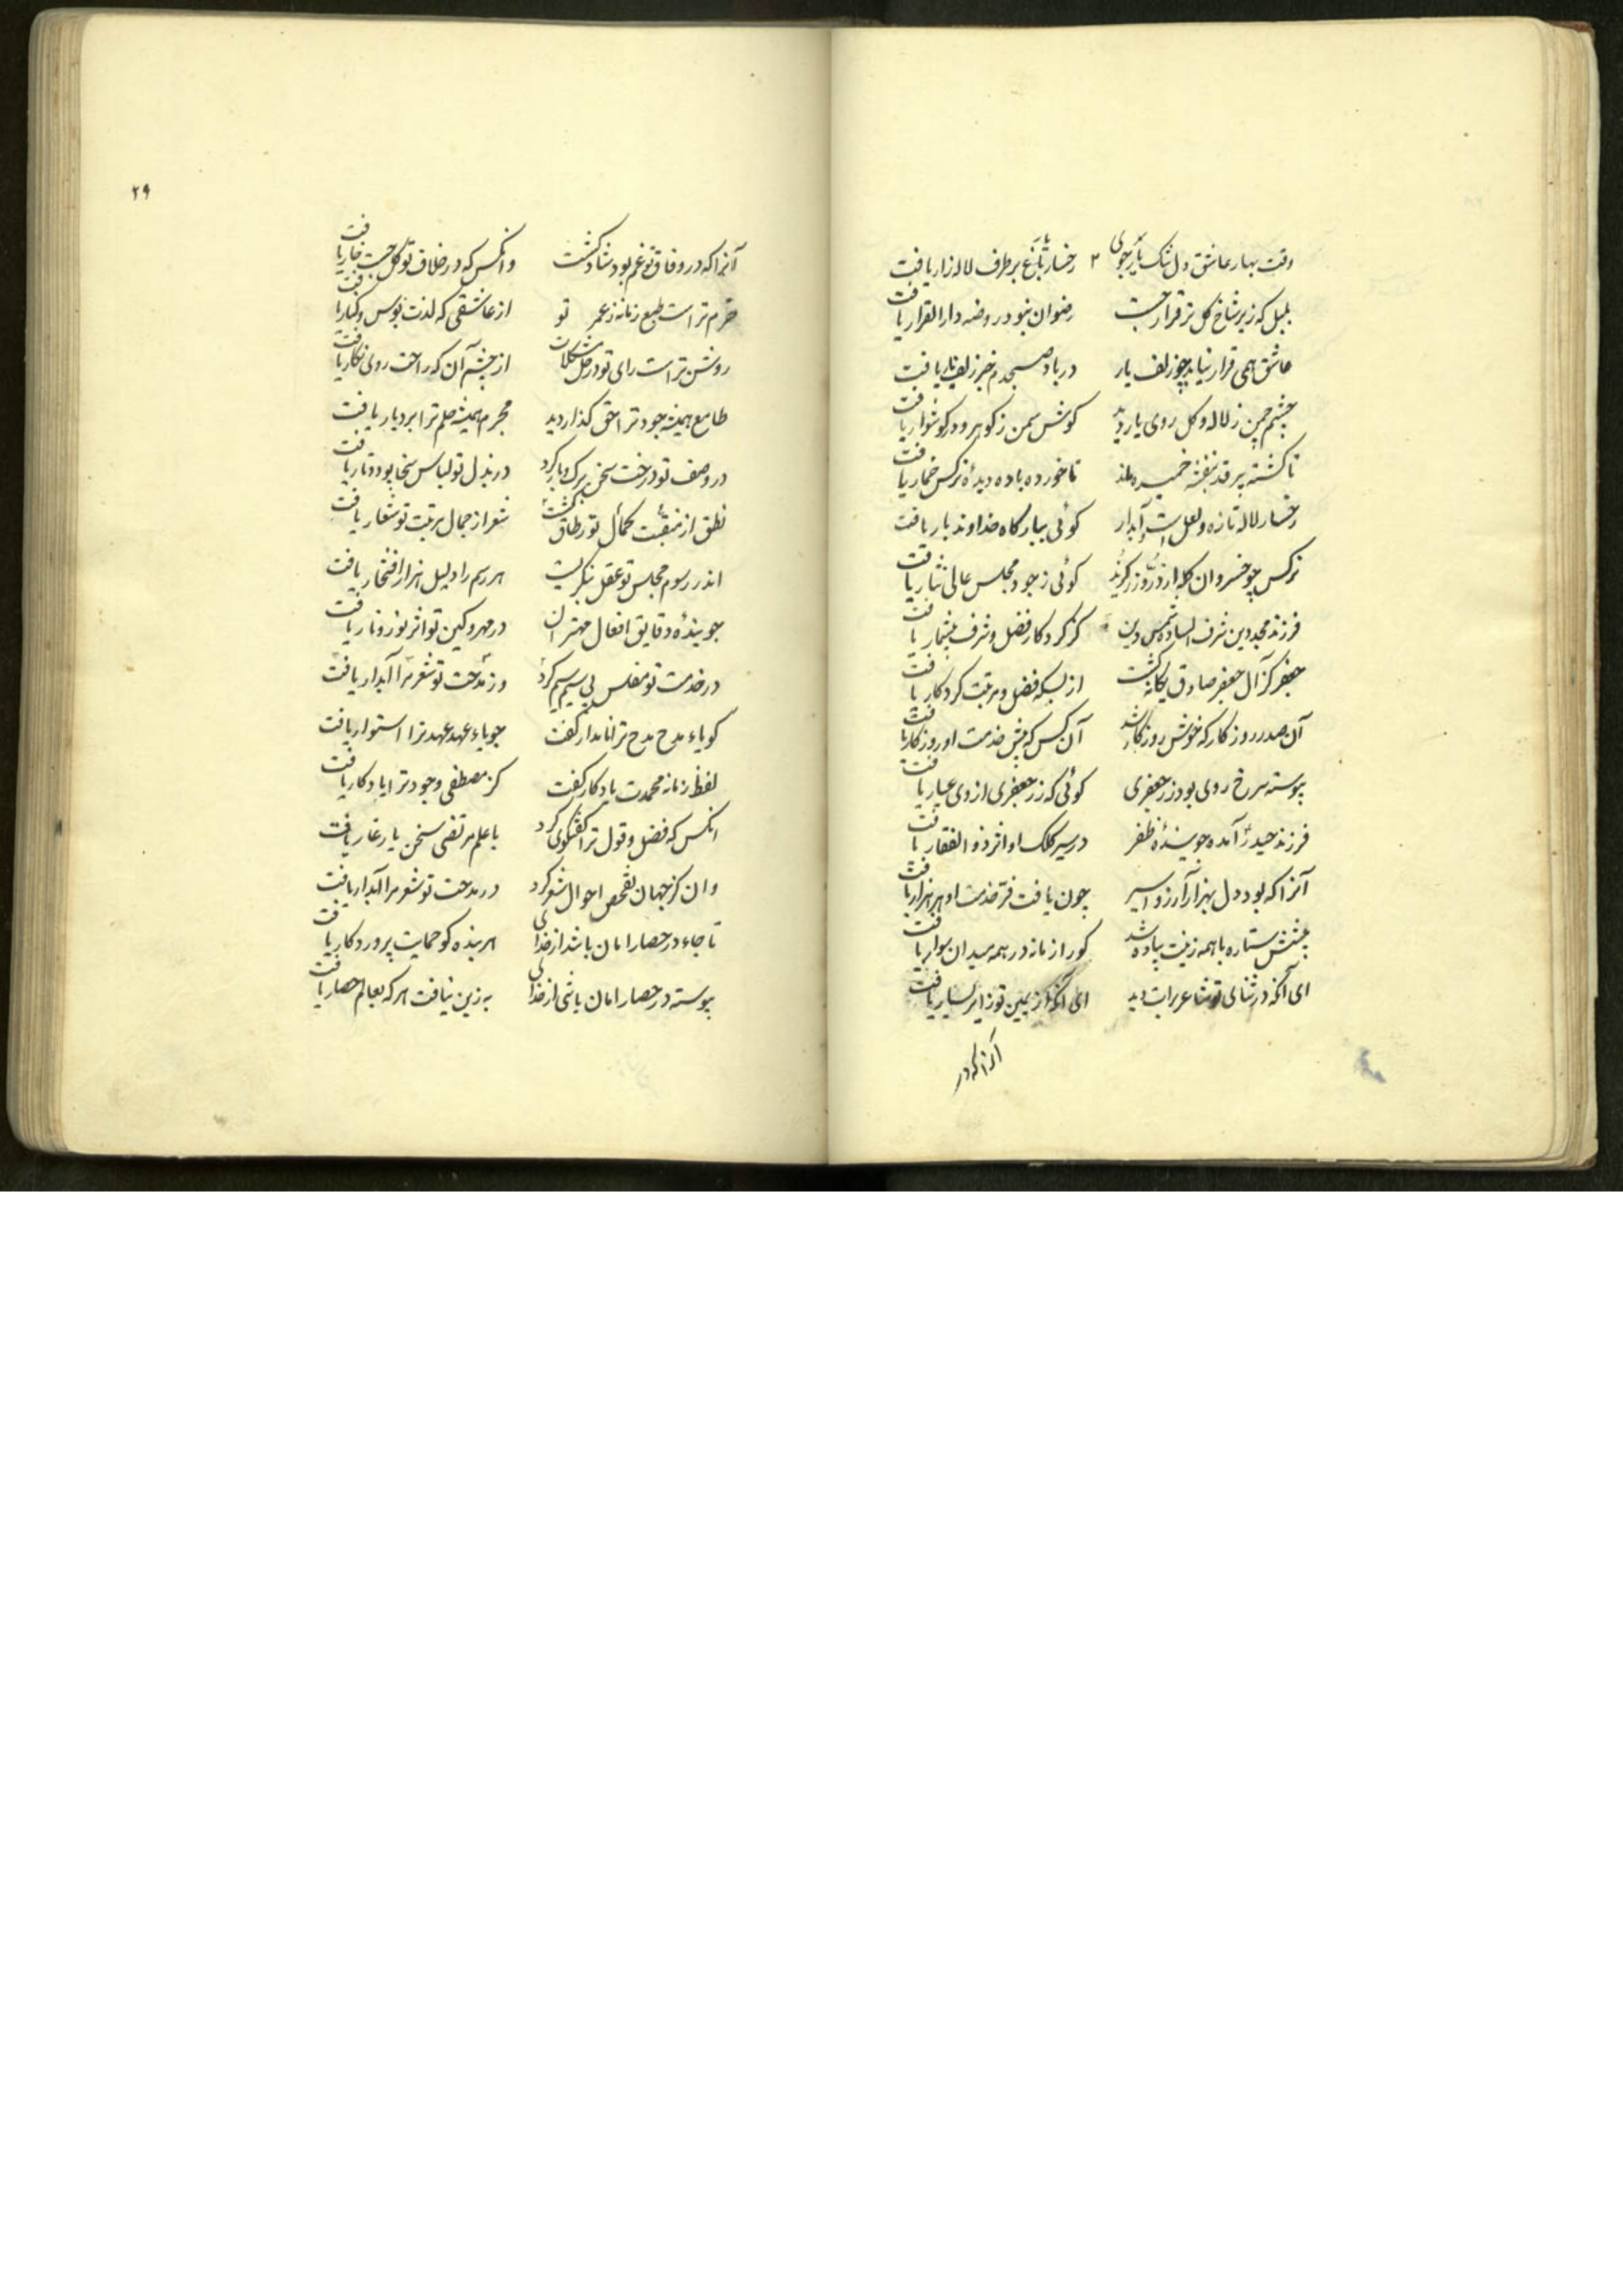 وقت بهار عاشق دل تنگ یار جوی ۲ رخسار باغ بر طرف لاله زار یافت
بلبل که زیر شاخ گل تر قرار جست رضوان نبود در روضه دار القرار یافت
عاشق همی قرار نیابد چو زلف یار در باد صبحدم خبر زلف یار یافت
چشم چمن ز لاله و گل روی یار دید گوش سمن ز گوهر و در گوشوار یافت
ناگشته پیر قد بنفشه خمیده ماند ناخورده باده دیدهٔ نرگس خمار یافت
رخسار لاله تازه و لعل است و آبدار گوئی ببارگاه خداوند بار یافت
نرگس چو خسروان کله از در و زر گزید گوئی ز جود مجلس عالی نثار یافت
فرزند مجد دین شرف الساده شمس دین کز کردگار فضل و شرف بیشمار یافت
جعفر کز آل جعفر صادق یگانه گشت از بسکه فضل و مرتبت کردگار یافت
آن صدر روزگار که خوش روزگار شد آن کس که پیش خدمت او روزگار یافت
پیوسته سرخ روی بود زر جعفری گوئی که زر جعفری از وی عیار یافت
فرزند حیدر آمده جویندهٔ ظفر در سیر کلک او اثر ذوالفقار یافت
آنرا که بود دل بهزار آرزو اسیر چون یافت فر خدمت او هر هزار یافت
پیشش ستاره با همه زینت پیاده شد کو را زمانه در همه میدان سوار یافت
ای آنکه در ثنای تو شاعر برات دید ای آنکه از یمین تو زایر یسار یافت
آنرا که در
۲۹
آنرا که در وفاق تو غم بود شاد گشت وانکس که در خلاف تو گل جست خار یافت
خرم تر است طبع زمانه ز عمر تو از عاشقی که لذت بوس و کنار یافت
روشن تر است رای تو در حل مشکلات از چشم آن که راحت روی نگار یافت
طامع همیشه جود ترا حق گذار دید مجرم همیشه حلم ترا بردبار یافت
در وصف تو درخت سخن برگ و بار کرد در بذل تو لباس سخا پود و تار یافت
نطق از منقبت کمال تو نطاق گشت شعر از جمال مرتبت تو شعار یافت
اندر رسوم مجلس تو عقل بنگریست هر رسم را دلیل هزار افتخار یافت
جویندهٔ دقایق افعال مهتران در مهر و کین تو اثر نور و نار یافت
در خدمت تو مفلس بی سیم سیم کرد وز مدحت تو شعر مرا آبدار یافت
گویاء مدح مدح ترا نامدار گفت جویاء عهد عهد ترا استوار یافت
لفظ زمانه محمدت یادگار گفت کز مصطفی وجود ترا یادگار یافت
انکس که فضل و قول ترا گفتگوی کرد با علم مرتضی سخن یار غار یافت
وان کز جهان تفحص احوال شعر کرد در مدحت تو شعر مرا آبدار یافت
تا جاء در حصار امان باشد از خدای هر بنده کو حمایت پروردگار یافت
پیوسته در حصار امان باشی از خدای به زین نیافت هر که بعالم حصار یافت